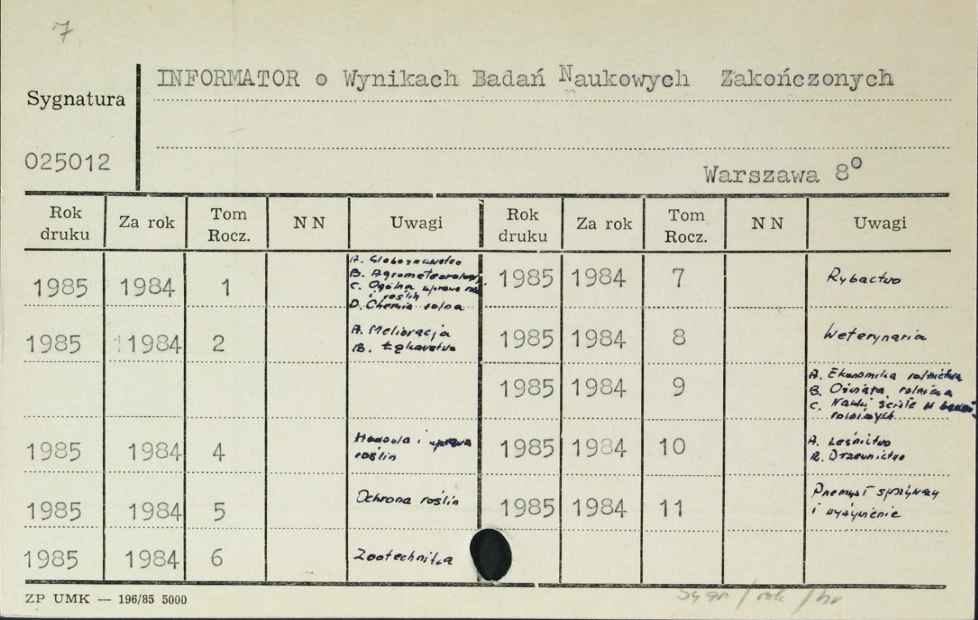 7
INFORMATOR o Wynikach Badań Naukowych Zakończonych
Sygnatura
025012
Warszawa 8º
Rok druku Za rok Tom Rocz. N N Uwagi Rok druku Za rok Tom Rocz. N N Uwagi
1985 1984 1
A. Gleboznawstwo
B. Agrometeorologia
C. Ogólna uprawa roli
i roślin
D. Chemia rolna
1985 1984 7 Rybactwo
1985 1984 2
A. Melioracja
B. Łąkarstwo
1985 1984 8 Weterynaria
1985 1984 9
A. Ekonomika rolnictwa
B. Oświata rolnicza
C. Nauki ścisłe w
rolniczych
1985 1984 4
Hodowla i uprawa
roślin
1985 1984 10
A. Leśnictwo
B. Drzewnictwo
1985 1984 5 Ochrona roślin
1985 1984 11
Przemysł spożywczy
i wyżywienie
1985 1984 6 Zootechnika
ZP UMK — 196/85 5000
sygn / rok /